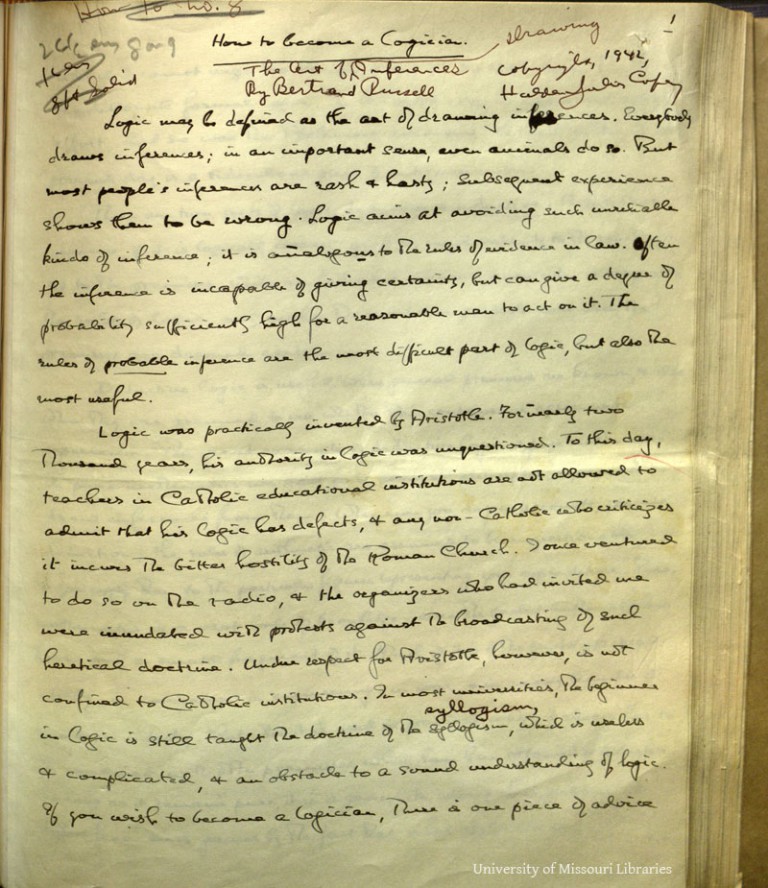 How to No. 8
1
How to become a Logician.
drawing
The Art of Inferences
By Bertrand Russell
Copyright, 1942,
Haldeman-Julius Copy
8pt Solid
Logic may be defined as the art of drawing inferences. Everybody
draws inferences; in an important sense, even animals do so. But
most people's inferences are rash & hasty; subsequent experience
shows them to be wrong. Logic aims at avoiding such unreliable
kinds of inference; it is analogous to the rules of evidence in law. Often
the inference is incapable of giving certainty, but can give a degree of
probability sufficiently high for a reasonable man to act on it. The
rules of probable inference are the most difficult part of logic, but also the
most useful.
Logic was practically invented by Aristotle. For nearly two
thousand years, his authority in logic was unquestioned. To this day,
teachers in Catholic educational institutions are not allowed to
admit that his logic has defects, & any non-Catholic who criticizes
it incurs the bitter hostility of the Roman Church. I once ventured
to do so on the radio, & the organizers who had invited me
were inundated with protests against the broadcasting of such
heretical doctrine. Undue respect for Aristotle, however, is not
confined to Catholic institutions. In most universities, the beginner
syllogism,
in logic is still taught the doctrine of the syllogism, which is useless
& complicated, & an obstacle to a sound understanding of logic.
If you wish to become a logician, there is one piece of advice
University of Missouri Libraries